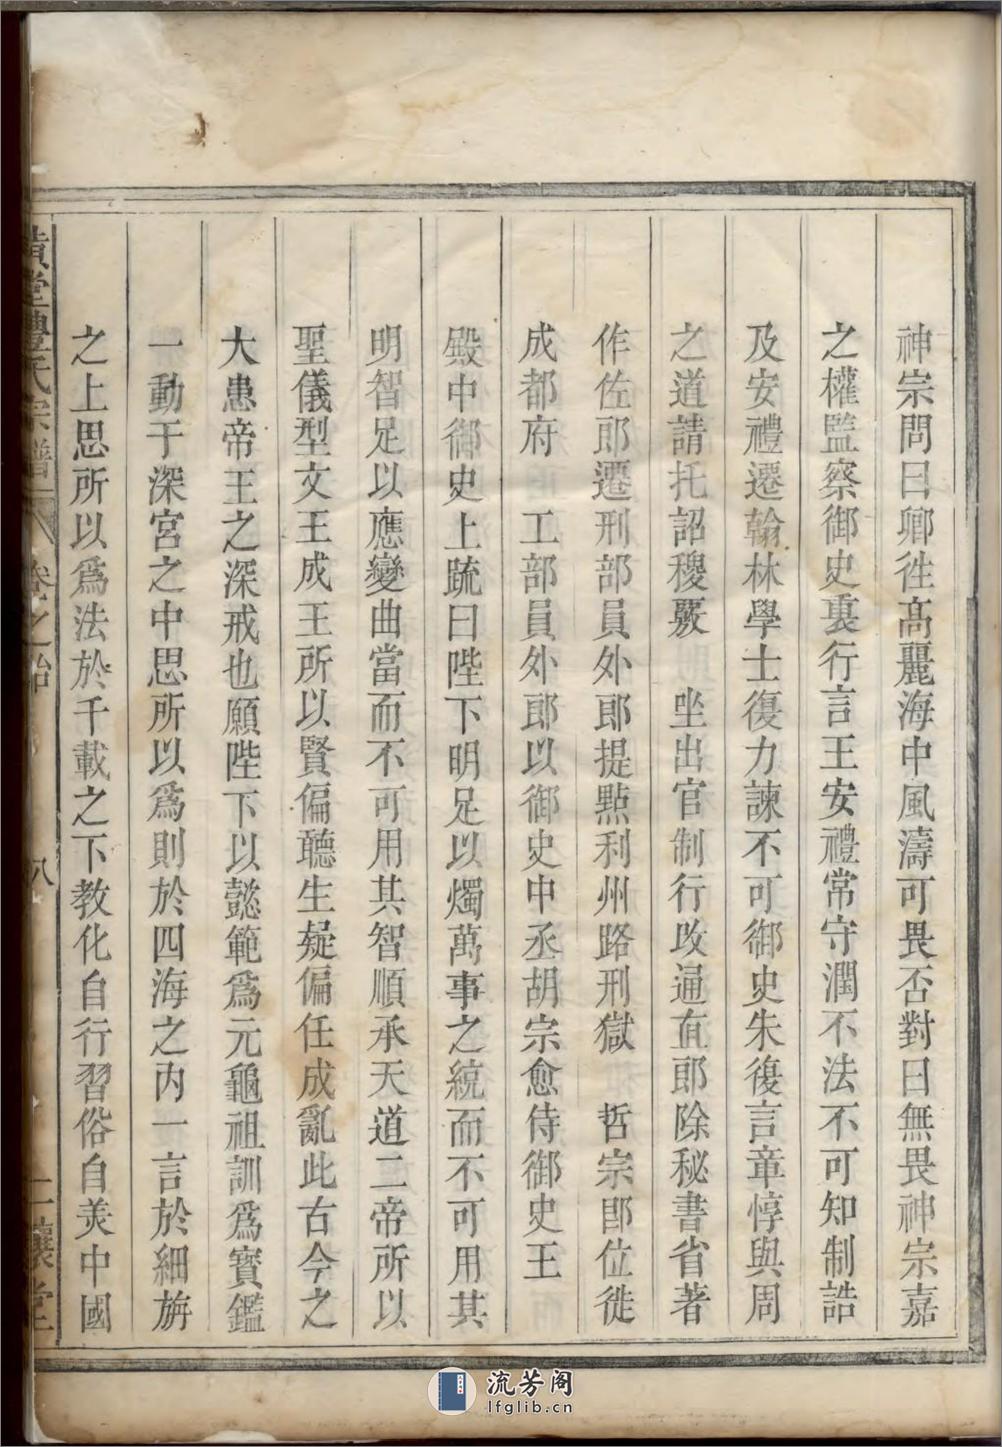 神宗問曰卿徃高麗海中風濤可畏否對曰無畏神宗嘉
之權監察御史裏行言王安禮常守潤不法不可知制誥
及安禮遷翰林學士復力諫不可御史朱復言章惇與周
之道請托詔稷覈　坐出官制行改通直郎除秘書省著
作佐郎遷刑部員外郎提點利州路刑獄　哲宗卽位徙
成都府　工部員外郎以御史中丞胡宗愈侍御史王
殿中御史上疏曰陛下明足以燭萬事之統而不可用其
明智足以應變曲當而不可用其智順承天道二帝所以
聖儀型文王成王所以賢偏聽生疑偏任成亂此古今之
大患帝王之深戒也願陛下以懿範為元龜祖訓爲寳鑑
一動于深宮之中思所以爲則於四海之內一言於細旃
之上思所以爲法於千載之下教化自行習俗自美中國
黃堂豊氏宗譜　卷之　八　堂
流芳阁
lfglib.cn